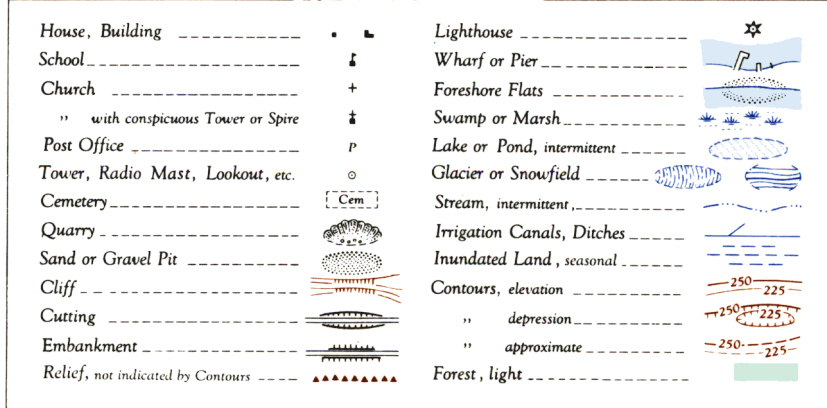 House, Building
School
Church
,, with conspicuous Tower or Spire
Post Office P
Tower, Radio Mast, Lookout, etc.
Cemetery Cem
Quarry
Sand or Gravel Pit
Cliff
Cutting
Embankment
Relief, not indicated by Contours
Lighthouse
Wharf or Pier
Foreshore Flats
Swamp or Marsh
Lake or Pond, intermittent
Glacier or Snowfield
Stream, intermittent,
Irrigation Canals, Ditches
Inundated Land, seasonal
Contours, elevation 250 225
,, depression 250 225
,, approximate 250 225
Forest, light